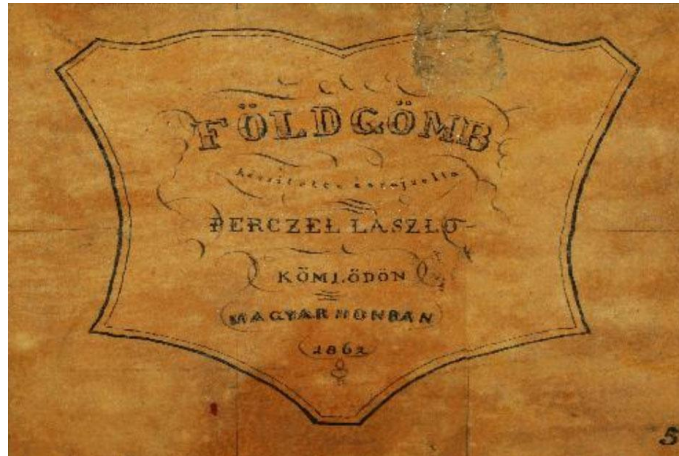 FÖLDGÖMB
készítette és rajzolta
PERCZEL LÁSZLÓ
KÖMLŐDÖN
MAGYARHONBAN
1862
5